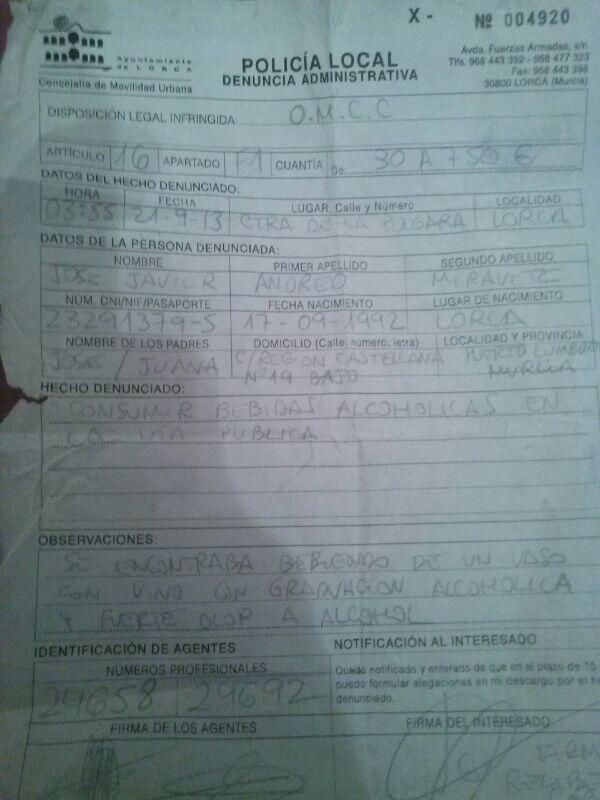 X - Nº 004920
Ayuntamiento
de LORCA
Concejalía de Movilidad Urbana
POLICÍA LOCAL
DENUNCIA ADMINISTRATIVA
Avda. Fuerzas Armadas, s/n.
Tlfs. 968 443 392 - 968 477 323
Fax: 968 443 398
30800 LORCA (Murcia)
DISPOSICIÓN LEGAL INFRINGIDA: O.M.C.C
ARTÍCULO 16 APARTADO F1 CUANTÍA De 30 A 750 €
DATOS DEL HECHO DENUNCIADO:
HORA FECHA LUGAR, Calle y Número LOCALIDAD
03:55 21-9-13 CTRA DE LA PULGARA LORCA
DATOS DE LA PERSONA DENUNCIADA:
NOMBRE PRIMER APELLIDO SEGUNDO APELLIDO
JOSE JAVIER ANDREO MIRAVETE
NÚM. DNI/NIF/PASAPORTE FECHA NACIMIENTO LUGAR DE NACIMIENTO
23291379-S 17-09-1992 LORCA
NOMBRE DE LOS PADRES DOMICILIO (Calle, número, letra) LOCALIDAD Y PROVINCIA
JOSE / JUANA C/REGION CASTELLANA PUERTO
Nº19 BAJO MURCIA
HECHO DENUNCIADO:
CONSUMIR BEBIDAS ALCOHOLICAS EN
LA VIA PUBLICA
OBSERVACIONES:
SE ENCONTRABA BEBIENDO DE UN VASO
CON VINO CON GRADUACION ALCOHOLICA
Y FUERTE OLOR A ALCOHOL
IDENTIFICACIÓN DE AGENTES
NÚMEROS PROFESIONALES
24658 29692
FIRMA DE LOS AGENTES
NOTIFICACIÓN AL INTERESADO
Quedo notificado y enterado de que en el plazo de 15
puedo formular alegaciones en mi descargo por el he
denunciado.
FIRMA DEL INTERESADO